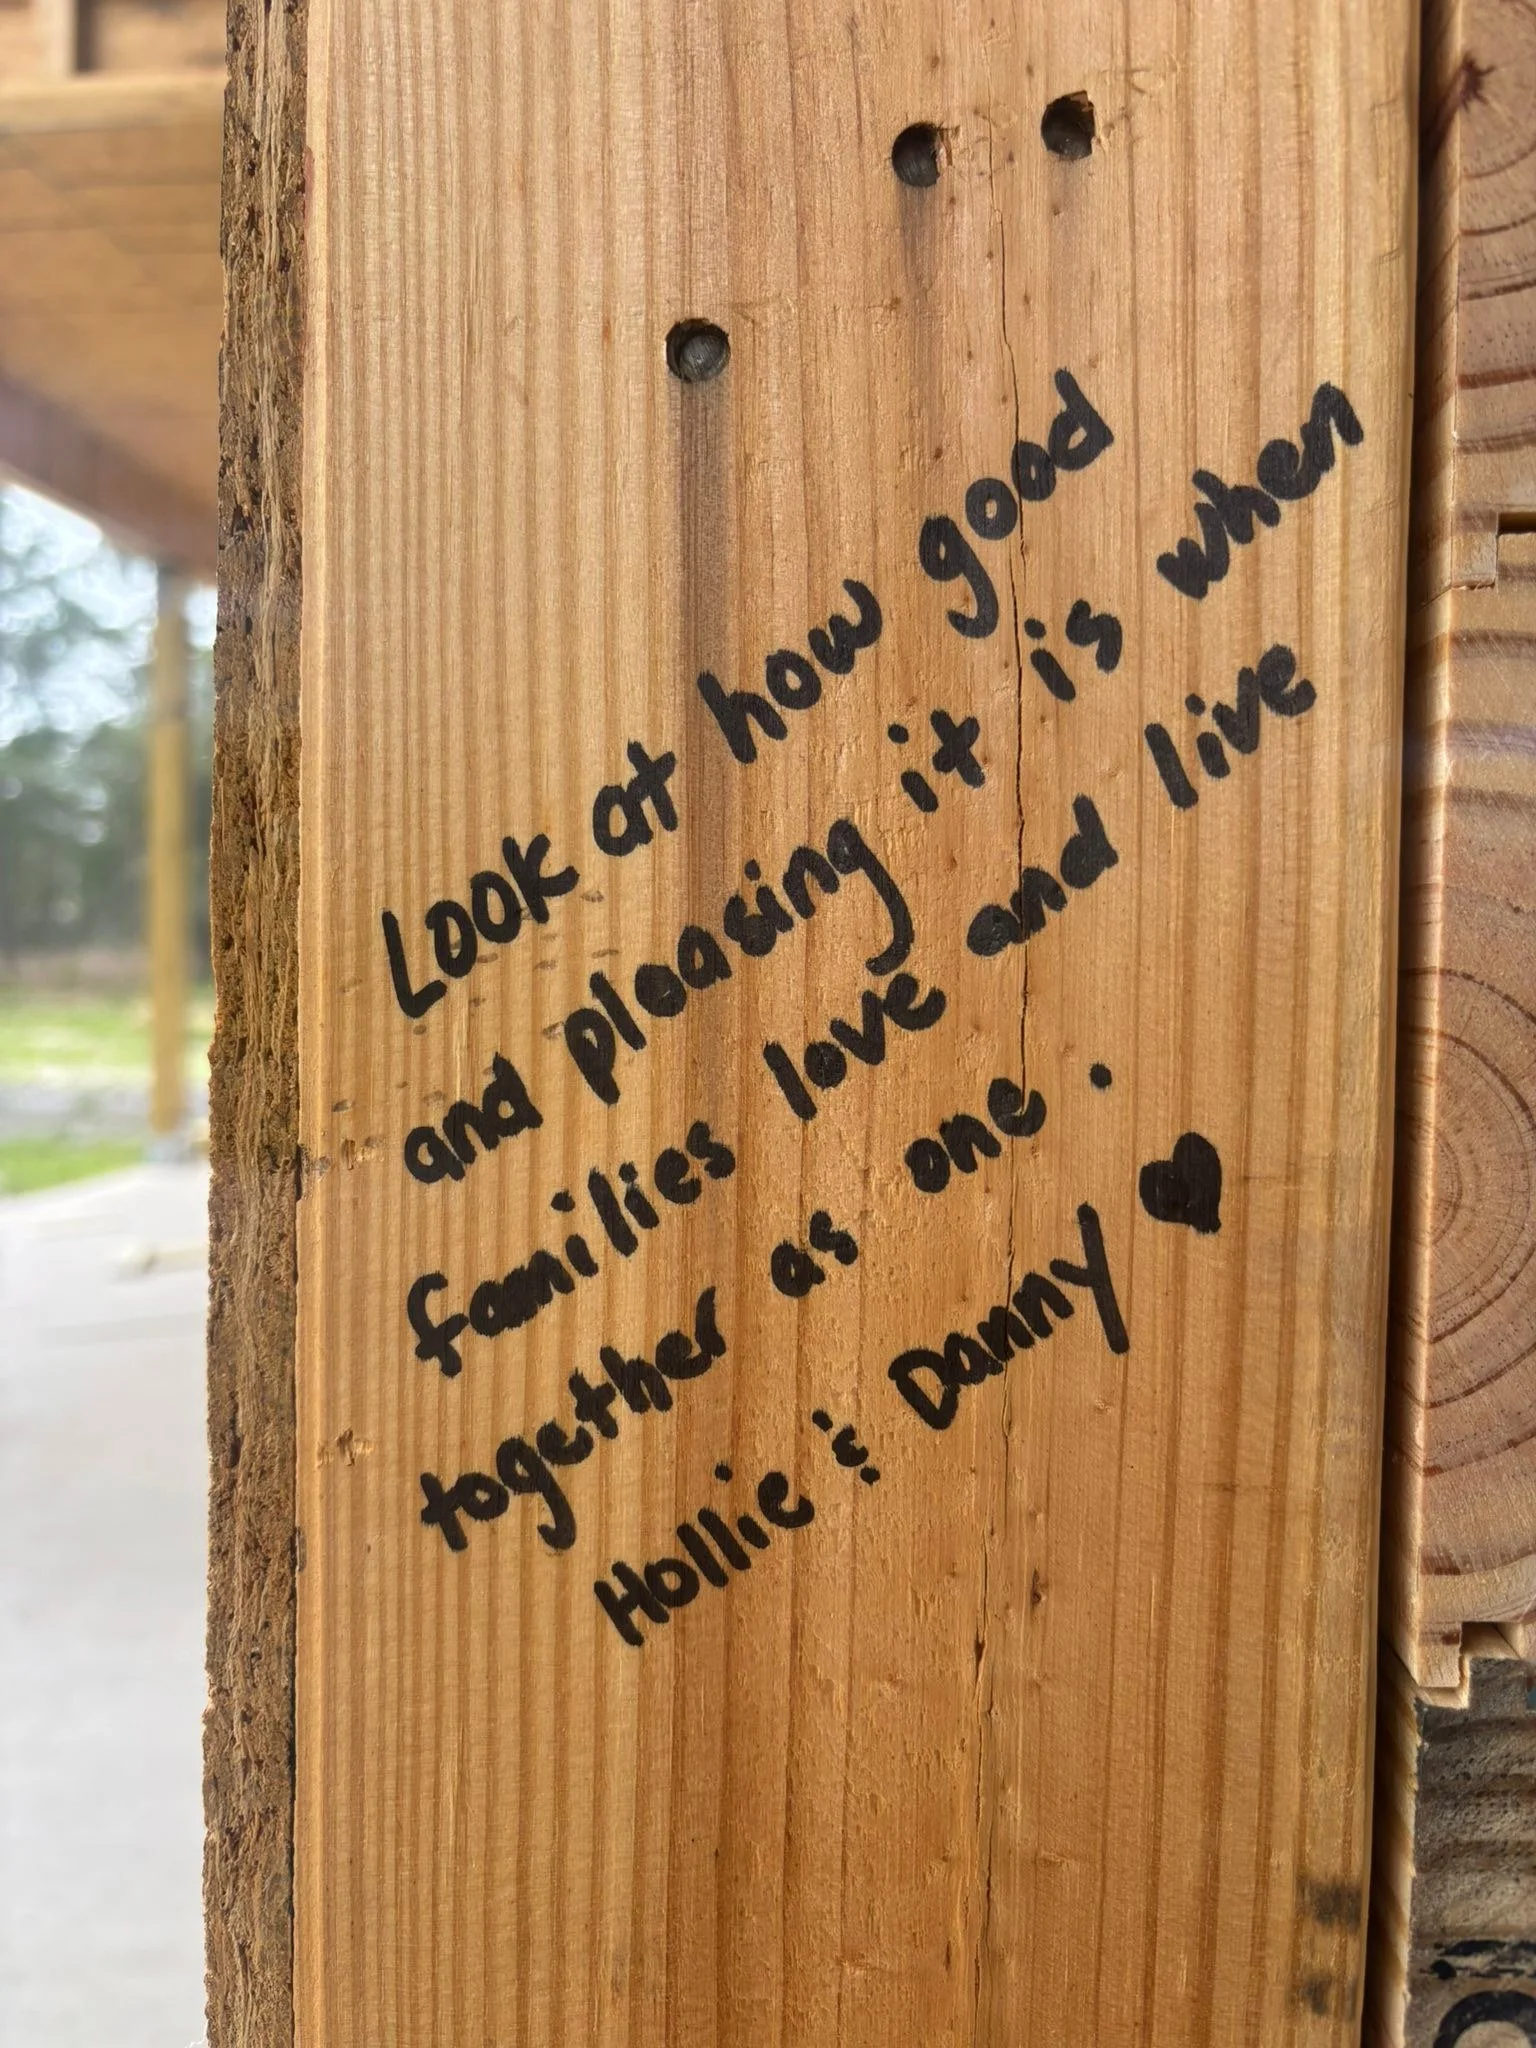 Look at how good
and pleasing it is when
families love and live
together as one.
Hollie & Danny ♥